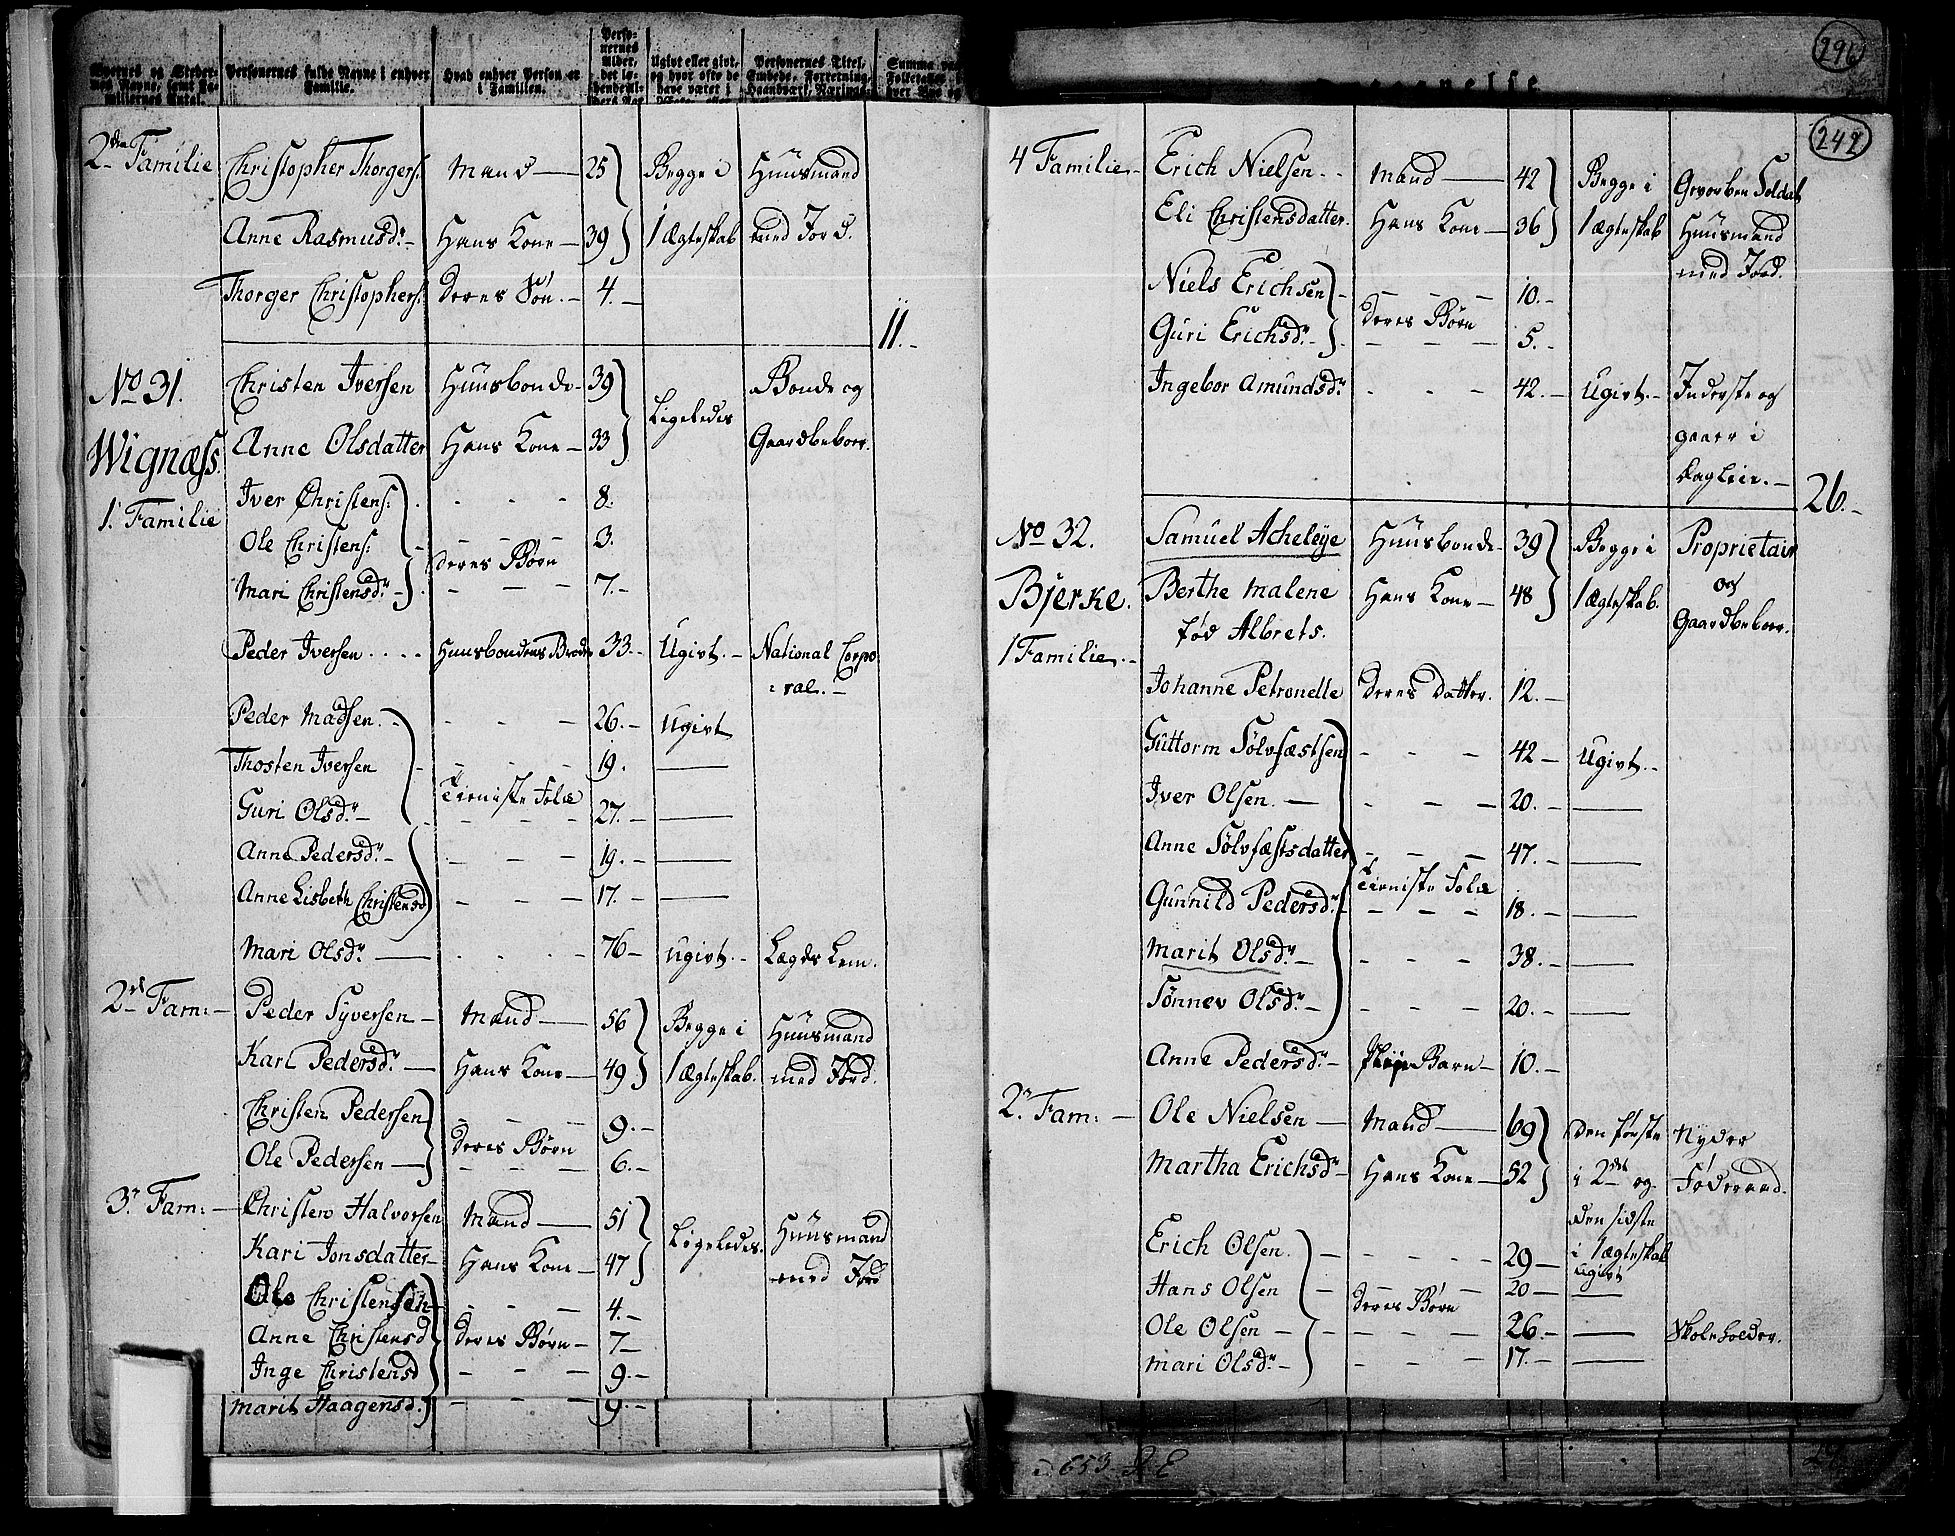 Personernes fulde Navne i enhver Familie.
Hvad enhver Person er i Familien.
Ugivt eller givt, og hvor ofte de have været i
Personernes Titel, Embede, Forretning, Haandværk,
296
242
2den Familie Christopher Thorgers: Mand 25 Begge i Huusmand
Anne Rasmusdr. Hans Kone 39 1 Ægteskab med Jord.
Thorger Christophers: Deres Søn. 4.
11.
No 31. Christen Iversen Huusbonde 39 Ligeledes Bonde og
Wignæss. Anne Olsdatter Hans Kone 33 Gaardbeboer.
1. Familie Iver Christens: - - - 8.
Ole Christens: - - - 3.
Deres Børn
Mari Christensdr. - - - 7.
Peder Iversen .... Huusbondens Broder 33. Ugivt. National Corpo
ral.
Peder Madsen. - - - 26. Ugivt
Thosten Iversen - - - 19. —
Tieniste Folk
Guri Olsdr. - - - 27. —
Anne Pedersdr. - - - 19. —
Anne Lisbeth Christensd - - - 17. —
Mari Olsdr. - - - 76 Ugivt. Lægds Lem.
2den Fam: Peder Syversen Mand 56 Begge i Huusmand
Kari Pedersdr. Hans Kone 49 1 Ægteskab. med Jord.
Christen Pedersen - - - 9.
Deres Børn
Ole Pedersen - - - 6.
3. Fam: Christen Halvorsen Mand 51 Ligeledes. Huusmand
Kari Jonsdatter Hans Kone 47 med Jord
Ole Christensen - - - 4.
Anne Christensd Deres Børn 7
Inge Christensd - - - 9.
Marit Haagensd. - - - 9.
4 Familie. Erich Nielsen Mand 42 Begge i Gevorben Soldat
Eli Christensdatter. Hans Kone 36 1 Ægteskab Huusmand
med Jord.
Niels Erichsen - - - 10.
Deres Børn
Guri Erichsdr. - - - 5.
Ingebor Amundsdr. - - - 42. Ugivt. Inderste og
gaaer i
Dagleie.
26.
No 32. Samuel Acheleye Huusbonde 39 Begge i Proprietair
Bjerke. Berthe Malene Hans Kone 48 1 Ægteskab. og
fød Albrets. Gaardbeboer.
1 Familie.
Johanne Petronelle Deres Datter. 12.
Guttorm Sølvfæstsen - - - 42 Ugivt.
Iver Olsen. - - - 20. —
Anne Sølvfæstsdatter - - - 47. —
Tieniste Folk
Gunnild Pedersdr. - - - 18. —
Marit Olsdr. - - - 38. —
Sønnev Olsdr. - - - 20. —
Anne Pedersdr. Pleje Barn 10.
2. Fam: Ole Nielsen Mand 69 Den første Nyder
Martha Erichsdr Hans Kone 52 i 2det og Føderaad.
den sidste
i 1 Ægteskab
Erich Olsen. - - - 29 Ugivt
Hans Olsen - - - 20 —
Deres Børn
Ole Olsen - - - 26. — Skoleholder.
Mari Olsdr. - - - 17. —
653